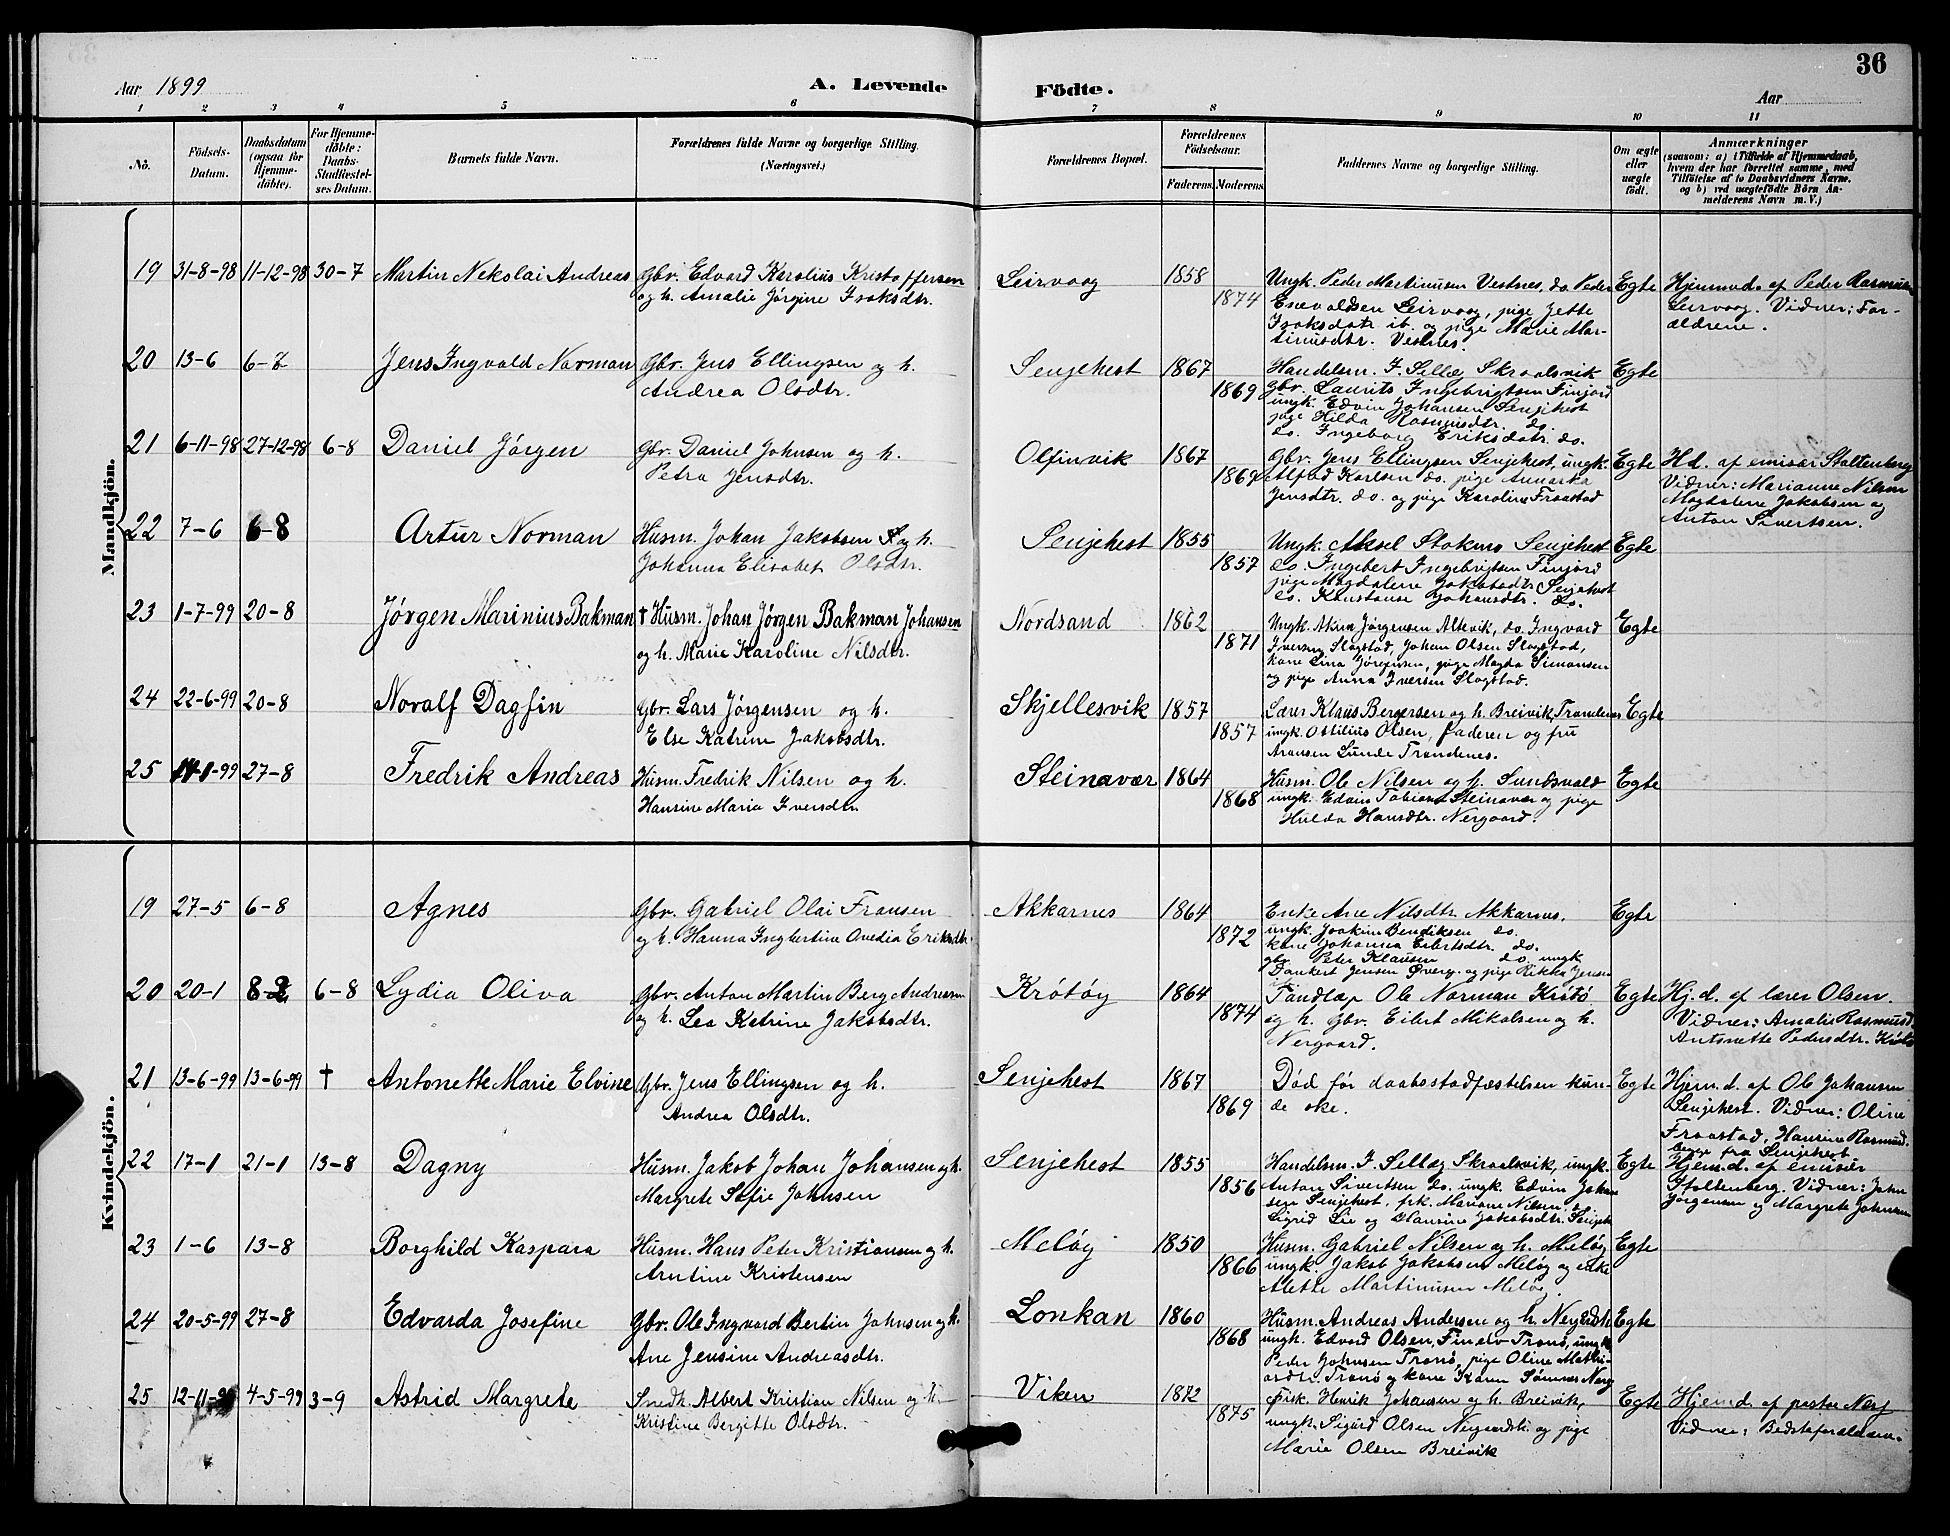 36
Aar 1899
A. Levende Födte.
Aar
1 2 3 4 5 6 7 8 9 10 11
No.
Födsels-Datum.
Daabsdatum (ogsaa for Hjemme-döbte).
For Hjemme-döbte: Daabs-Stadfæstel-ses Datum.
Barnets fulde Navn.
Forældrenes fulde Navne og borgerlige Stilling. (Næringsvei.)
Forældrenes Bopæl.
Forældrenes Födselsaar.
Faderens. Moderens.
Faddernes Navne og borgerlige Stilling.
Om ægte eller uægte födt.
Anmærkninger
(saasom: a) i Tilfælde af Hjemmedaab,
hvem der har forrettet samme, med
Tilföielse af to Daabsvidners Navne,
og b) ved uægtefödte Börn An-
melderens Navn m. V.)
Mandkjön.
19 31-8-98 11-12-98 30-7 Martin Nekolai Andreas Gbr. Edvard Karolius Kristoffersen
og h. Amalie Jørgine Isaksdtr.
Leirvaag 1858 1874
Ungk. Peder Martinusen Vestnes, do. Peder
Enevaldsen Leirvaag, pige Jette
Isaksdatr. ib. og pige Marie Mar-
tinusdtr. Vestnes.
Egte
Hjemmed. af Peder Rasmusen
Leirvaag. Vidner: For-
ældrene.
20 13-6 6-8 Jens Ingvald Norman Gbr. Jens Ellingsen og h.
Andrea Olsdtr.
Senjehest 1867 1869
Handelsm. J. Selle, Skraalsvik
Gbr. Laurits Ingebrigtsen Finjord
ungk. Edvin Johansen Senjehest
pige Hilda Rasmusdtr. do.
do. Ingeborg Eriksdatr. do.
Egte
21 6-11-98 27-12-98 6-8 Daniel Jørgen Gbr. Daniel Johnsen og h.
Petra Jensdtr.
Olfinvik 1867 1869
Gbr. Jens Ellingsen Senjehest, ungk.
Alfred Karlsen do. pige Annarka
Jensdtr. do. og pige Karoline Fraastad
Egte
Hd. af emisær Stoltenberg
Vidner: Marianne Nilsen
Magdalene Jakobsen og
Anton Sivertsen.
22 7-6 6-8 Artur Norman Husm. Johan Jakobsen og h.
Johanna Elisabet Olsdtr.
Senjehest 1855 1857
Ungk. Aksel Stokmo Senjehest
do. Ingebert Ingebrigtsen Finjord
pige Magdalene Jakobsdtr. Senjehest
do. Konstanse Johansdtr. do.
Egte
23 1-7-99 20-8 Jørgen Marinius Bakman † Husm. Johan Jørgen Bakman Johansen
og h. Marie Karoline Nilsdtr.
Nordsand 1862 1871
Ungk. Aksin Jørgensen Altevik, do. Ingvard
Iversen Slagstad, Johan Olsen Slagstad,
kone Lina Jørgensen, pige Magda Simonsen
og pige Anna Iversen Slagstad.
Egte
24 22-6-99 20-8 Noralf Dagfin Gbr. Lars Jørgensen og h.
Else Katrine Jakobsdtr.
Skjellesvik 1857 1857
Lærer Klaus Bergersen og h. Breivik, Trondenes
ungk. Ottilius Olsen, faderen og fru
Aronsen Lunde Trondenes.
Egte
25 11-1-99 27-8 Fredrik Andreas Husm. Fredrik Nilsen og h.
Hansine Maria Iversdtr.
Steinavær 1864 1868
Husm. Ole Nilsen og h. Sundsvald
ungk. Edvin Tobias Steinavær og pige
Hulda Hansdtr. Nergaard.
Egte
Kvindekjön.
19 27-5 6-8 Agnes Gbr. Gabriel Olai Fransen
og h. Hanna Ingbertine Ovedia Eriksdtr.
Akkarnes 1864 1872
Enke Ane Nilsdtr. Akkarnes.
ungk. Joakim Bendiksen do.
kone Johanna Eilertsdtr. do.
gbr. Peter Klausen do. ungk.
Dankert Jensen Øverg. og pige Rikka Jensen
Egte
20 20-1 8-2 6-8 Lydia Oliva Gbr. Anton Martin Berg Andreasen
og h. Lea Katrine Jakobsdtr.
Krøtøy 1864 1874
Tandlæge Ole Norman Kristø
og h. Gbr. Eilert Mikalsen og h.
Nergaard.
Egte
Hj.d. af lærer Olsen.
Vidner: Amalie Rasmusd.
Antonette Pedersdtr. Krøtø
21 13-6-99 13-6-99 † Antonette Marie Elvine Gbr. Jens Ellingsen og h.
Andrea Olsdtr.
Senjehest 1867 1869
Død før daabsstadfæstelsen kun-
de ske.
Egte
Hjem.d. af Ole Johansen
Senjehest. Vidner: Oline
Fraastad, Hansine Rasmusd.
begge fra Senjehest
22 17-1 21-1 13-8 Dagny Husm. Jakob Johan Johansen og h.
Margrete Sofie Johnsen
Senjehest 1855 1856
Handelsm. J. Selle, Skraalsvik, ungk.
Anton Sivertsen do. ungk. Edvin Johan-
sen Senjehest, frk. Mariane Nilsen,
Sigrid Lie og Hansine Jakobsdtr. Senjeh
Egte
Hjem.d. af emisær
Stoltenberg. Vidner: John
Jørgensen og Margrete Johnsen
23 1-6 13-8 Borghild Kaspara Husm. Hans Peter Kristiansen og h.
Arntine Kristensen
Meløy 1850 1866
Husm. Gabriel Nilsen og h. Meløy
ungk. Jakob Jakobsen Meløy og enke
Alette Martinusen Meløy.
Egte
24 20-5-99 27-8 Edvarda Josefine Gbr. Ole Ingvard Bertin Johnsen og h.
Ane Jensine Andreasdtr.
Lonkan 1860 1868
Husm. Andreas Andersen og h. Nergaardsh
ungk. Edvard Olsen, Tranø, ungk
Peder Johnsen Tranø, pige Oline Mathi-
Tranø og kone Karen Nerg
Egte
25 12-11-98 4-5-99 3-9 Astrid Margrete Snedk. Albert Kristian Nilsen og h.
Kristine Bergitte Olsdtr.
Viken 1872 1875
Fisk. Henrik Johansen og h. Breivik,
ungk. Sigurd Olsen Nergaardsh. og pige
Marie Olsen Breivik
Egte
Hjemd. af pastor Nerj
Vidner: Bedsteforældrene.